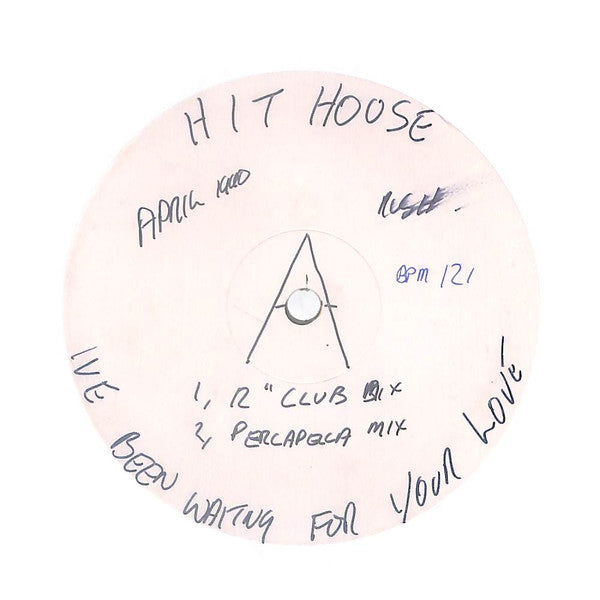 HIT HOOSE
APRIL 1990
RUSH.
BPM 121
A
1, 12" CLUB MIX
2, PERCAPELLA MIX
IVE BEEN WAITNG FOR YOUR LOVE